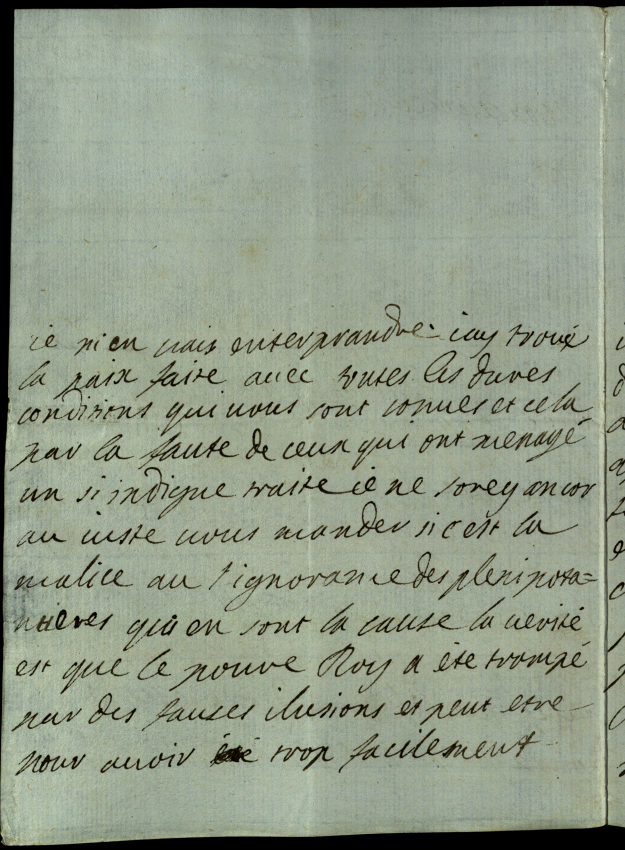 ie nien vais enterprandre. iay trouvé
la paix faite avec toutes les dures
conditions qui vous sont conues et cela
par la faute de ceux qui ont menagé
un si indigne traite ie ne sorey ancor
au iuste vous mander si cest la
malice au l'ignorance des plenipota=
ntieres qui en sont la cause la verité
est que le pouvre Roy a éte trompé
par des fauses ilusions et peut etre
pour avoir trop facilement